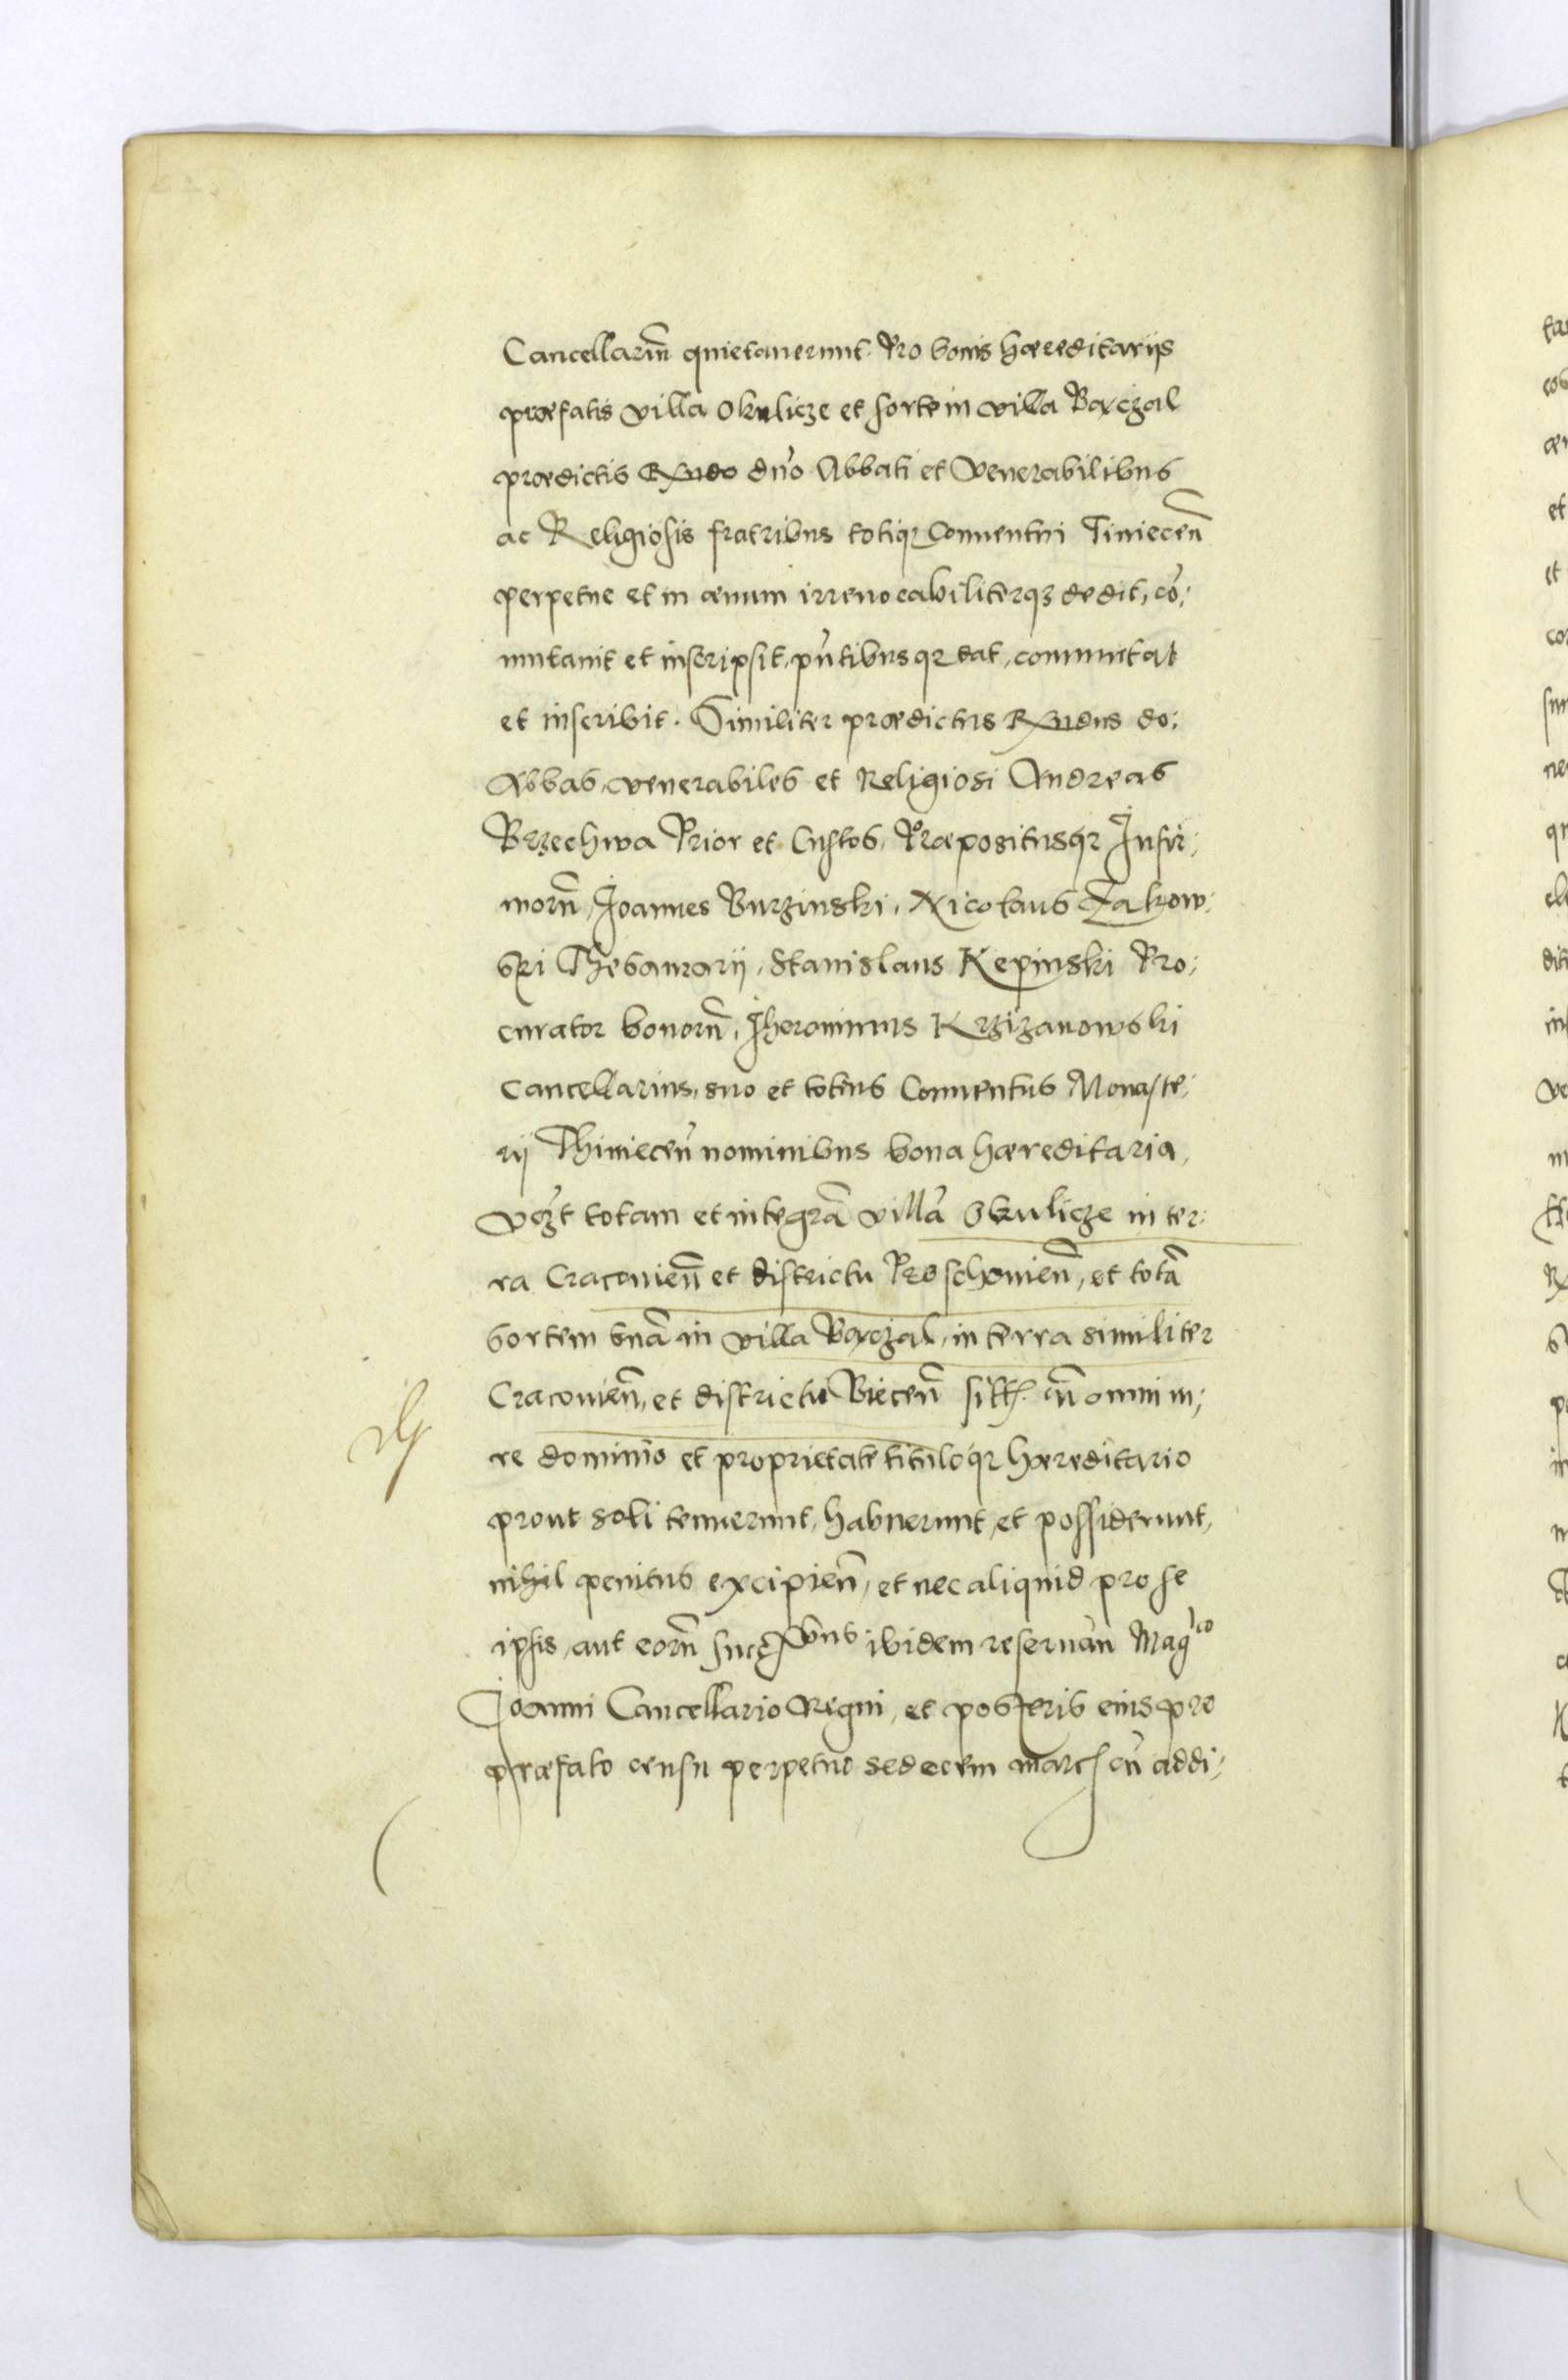 Cancellariũ quietauerunt. Pro bonis hæreditarijs
præfatis villa Okulicze et sorte in villa Bączal
prædictis Rx̃ndo dño Abbati et Venerabilibus
ac Religiosis fratribus totiq3 Conuentui Tiniecen̄
perpetue et in æuum irreuocabiliterq3 dedit, cõ:
mutauit et inscripsit, pñtibusq3 dat, commutat
et inscribit. Similiter prædictus Rx̃ndus do:
Abbas, venerabiles et Religiosi Andreas
Brzechwa Prior et Custos, Præpositusq3 Infir:
morũ, Joannes Burzinski, Nicolaus Zakow:
ski Thesaurarij, Stanislaus Kepinski Pro:
curator bonorũ, Jheronimus Krzizanowski
Cancellarius, suo et totius Conuentus Monaste:
rij Thiniecen̄ nominibus bona hæreditaria,
vczt totam et integrã villã Okulicze in ter:
ra Cracouien̄ et districtu Proschouien̄, et totã
sortem vnã in villa Bączal, in terra similiter
Cracouien̄, et districtu Biecen̄ sitt. cũ omni iu:
re dominio et proprietate tituloq3 hæreditario
prout soli tenuerunt, habuerunt, et possiderunt,
nihil penitus excipien̄, et nec aliquid pro se
ipsis, aut eorũ succ̃bus ibidem reseruan̄ Mag̃co
Joanni Cancellario Regni, et posteris eius pro
præfato censu perpetuo sedecem marc. cũ addi: